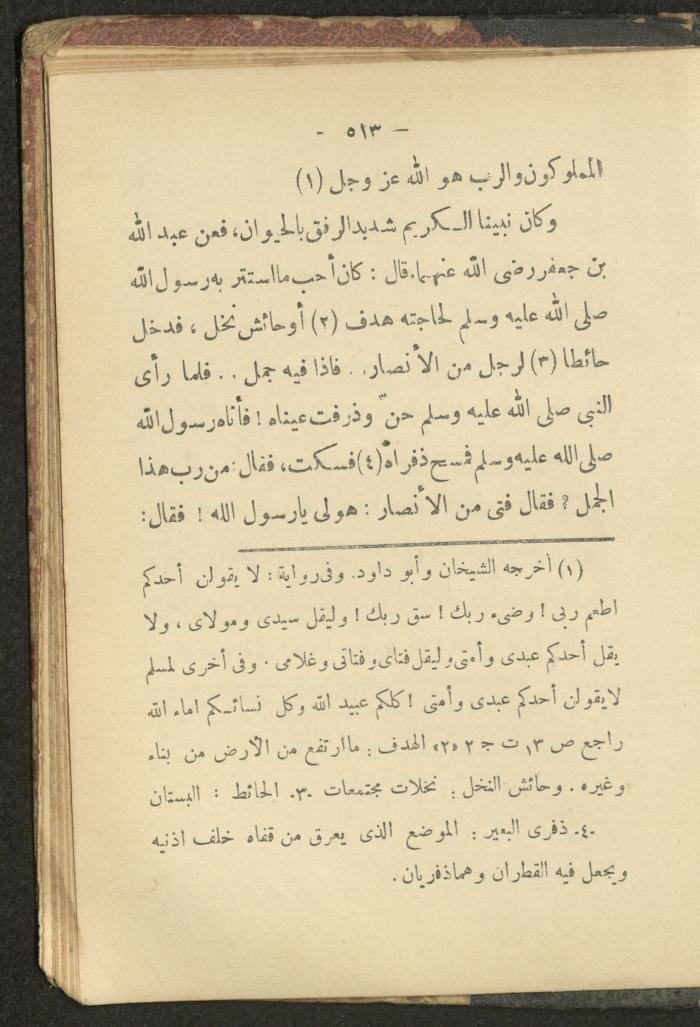 — ٥١٣ -
المملوكون والرب هو الله عز وجل (١)
وكان نبينا الكريم شديد الرفق بالحيوان، فعن عبد الله
بن جعفر رضى الله عنهما. قال : كان أحب مااستتر به رسول الله
صلى الله عليه وسلم لحاجته هدف (٢) أو حائش نخل ، فدخل
حائطا (٣) لرجل من الأنصار. . فاذا فيه جمل . . فلما رأى
النبى صلى الله عليه وسلم حنّ وذرفت عيناه ! فأتاه رسول الله
صلى الله عليه وسلم فمسح ذفراه (٤) فسكت، فقال : من رب هذا
الجمل ? فقال فتى من الأنصار : هو لى يارسول الله ! فقال:
(١) أخرجه الشيخان وأبو داود. وفى رواية : لا يقولن أحدكم
اطعم ربى ! وضىء ربك ! سق ربك ! وليقل سيدى ومولاى ، ولا
يقل أحدكم عبدى وأمتى وليقل فتاى وفتاتى وغلامى . وفى أخرى لمسلم
لايقولن أحدكم عبدى وأمتى ! كلكم عبيد الله وكل نسائكم اماء الله
راجع ص ١٣ ت ج ٢ «٢» الهدف : ماارتفع من الأرض من بناء
وغيره . وحائش النخل : نخلات مجتمعات -٣- الحائط : البستان
-٤- ذفرى البعير : الموضع الذى يعرق من قفاه خلف اذنيه
ويجعل فيه القطران وهماذفريان .